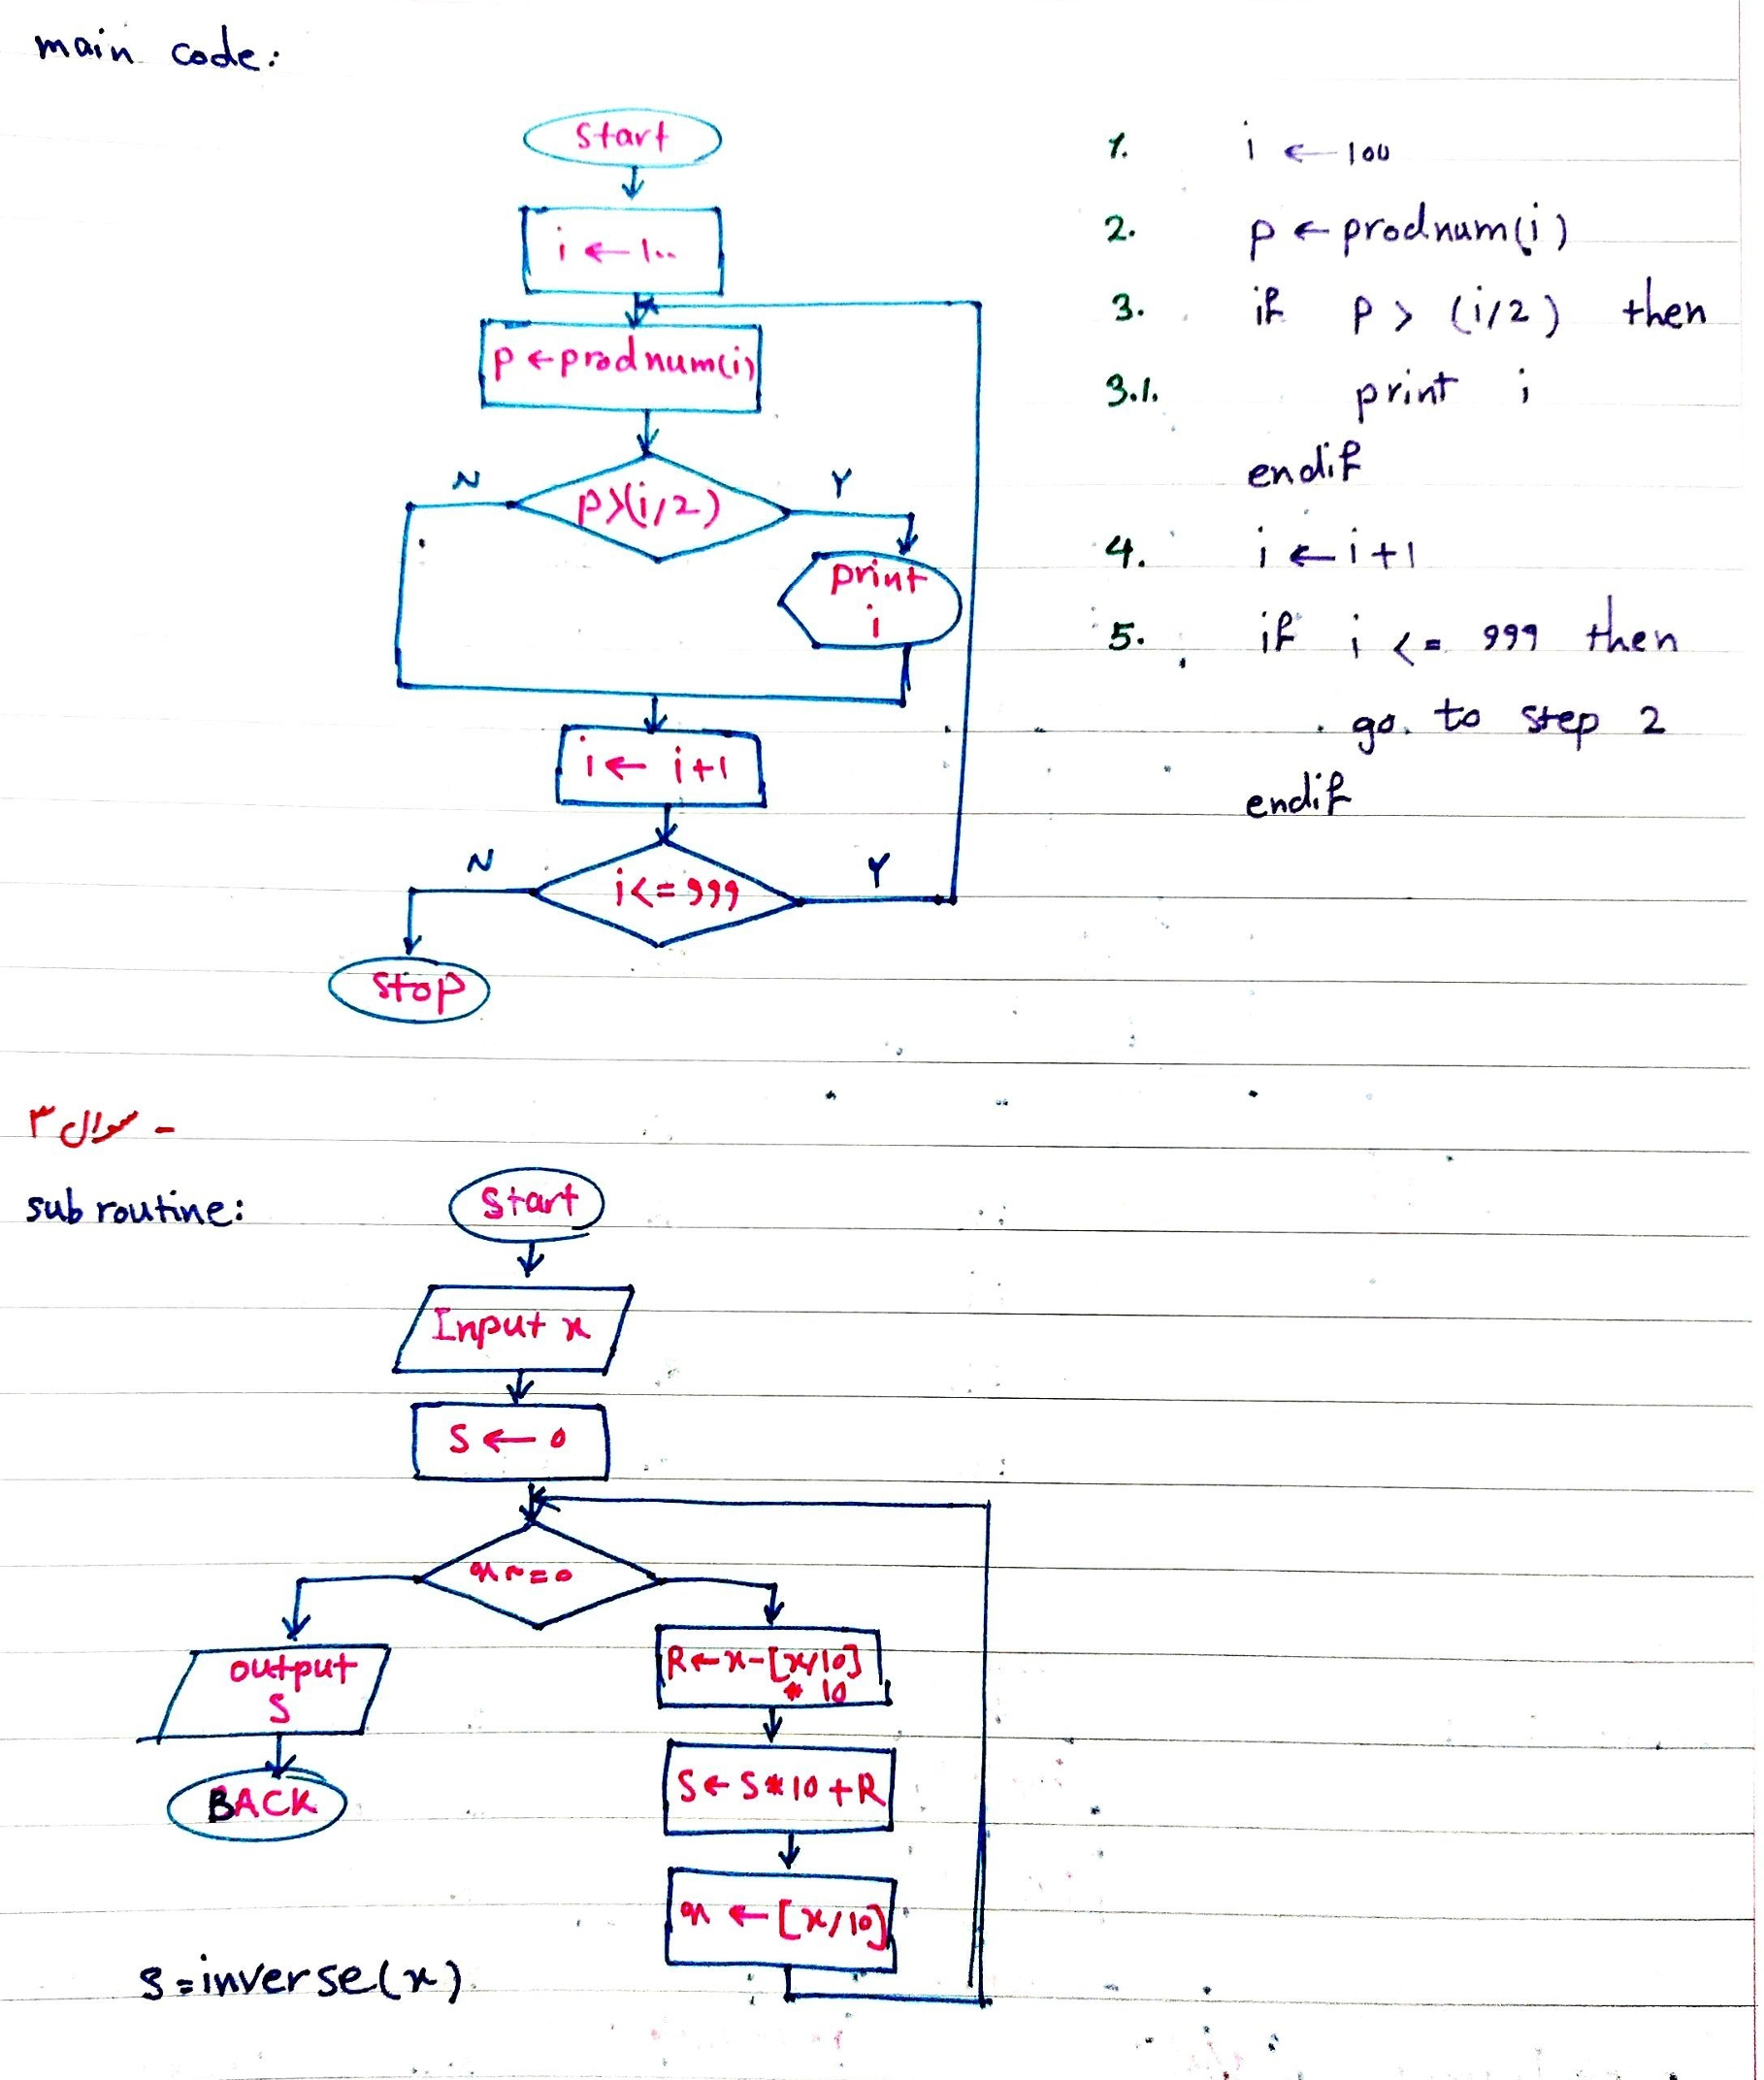 main code:
start
i ← 1..
p ← prodnum(i)
N
Y
p>(i/2)
print
i
i ← i+1
N
Y
i<=999
stop
1. i ← 100
2. p ← prodnum(i)
3. if p > (i/2) then
3.1. print i
endif
4. i ← i+1
5. if i <= 999 then
go to step 2
endif
سوال ۳ -
subroutine:
Start
Input x
S ← 0
x ~= 0
output
S
BACK
R ← x-[x/10]
* 10
S ← S*10+R
x ← [x/10]
S=inverse(x)